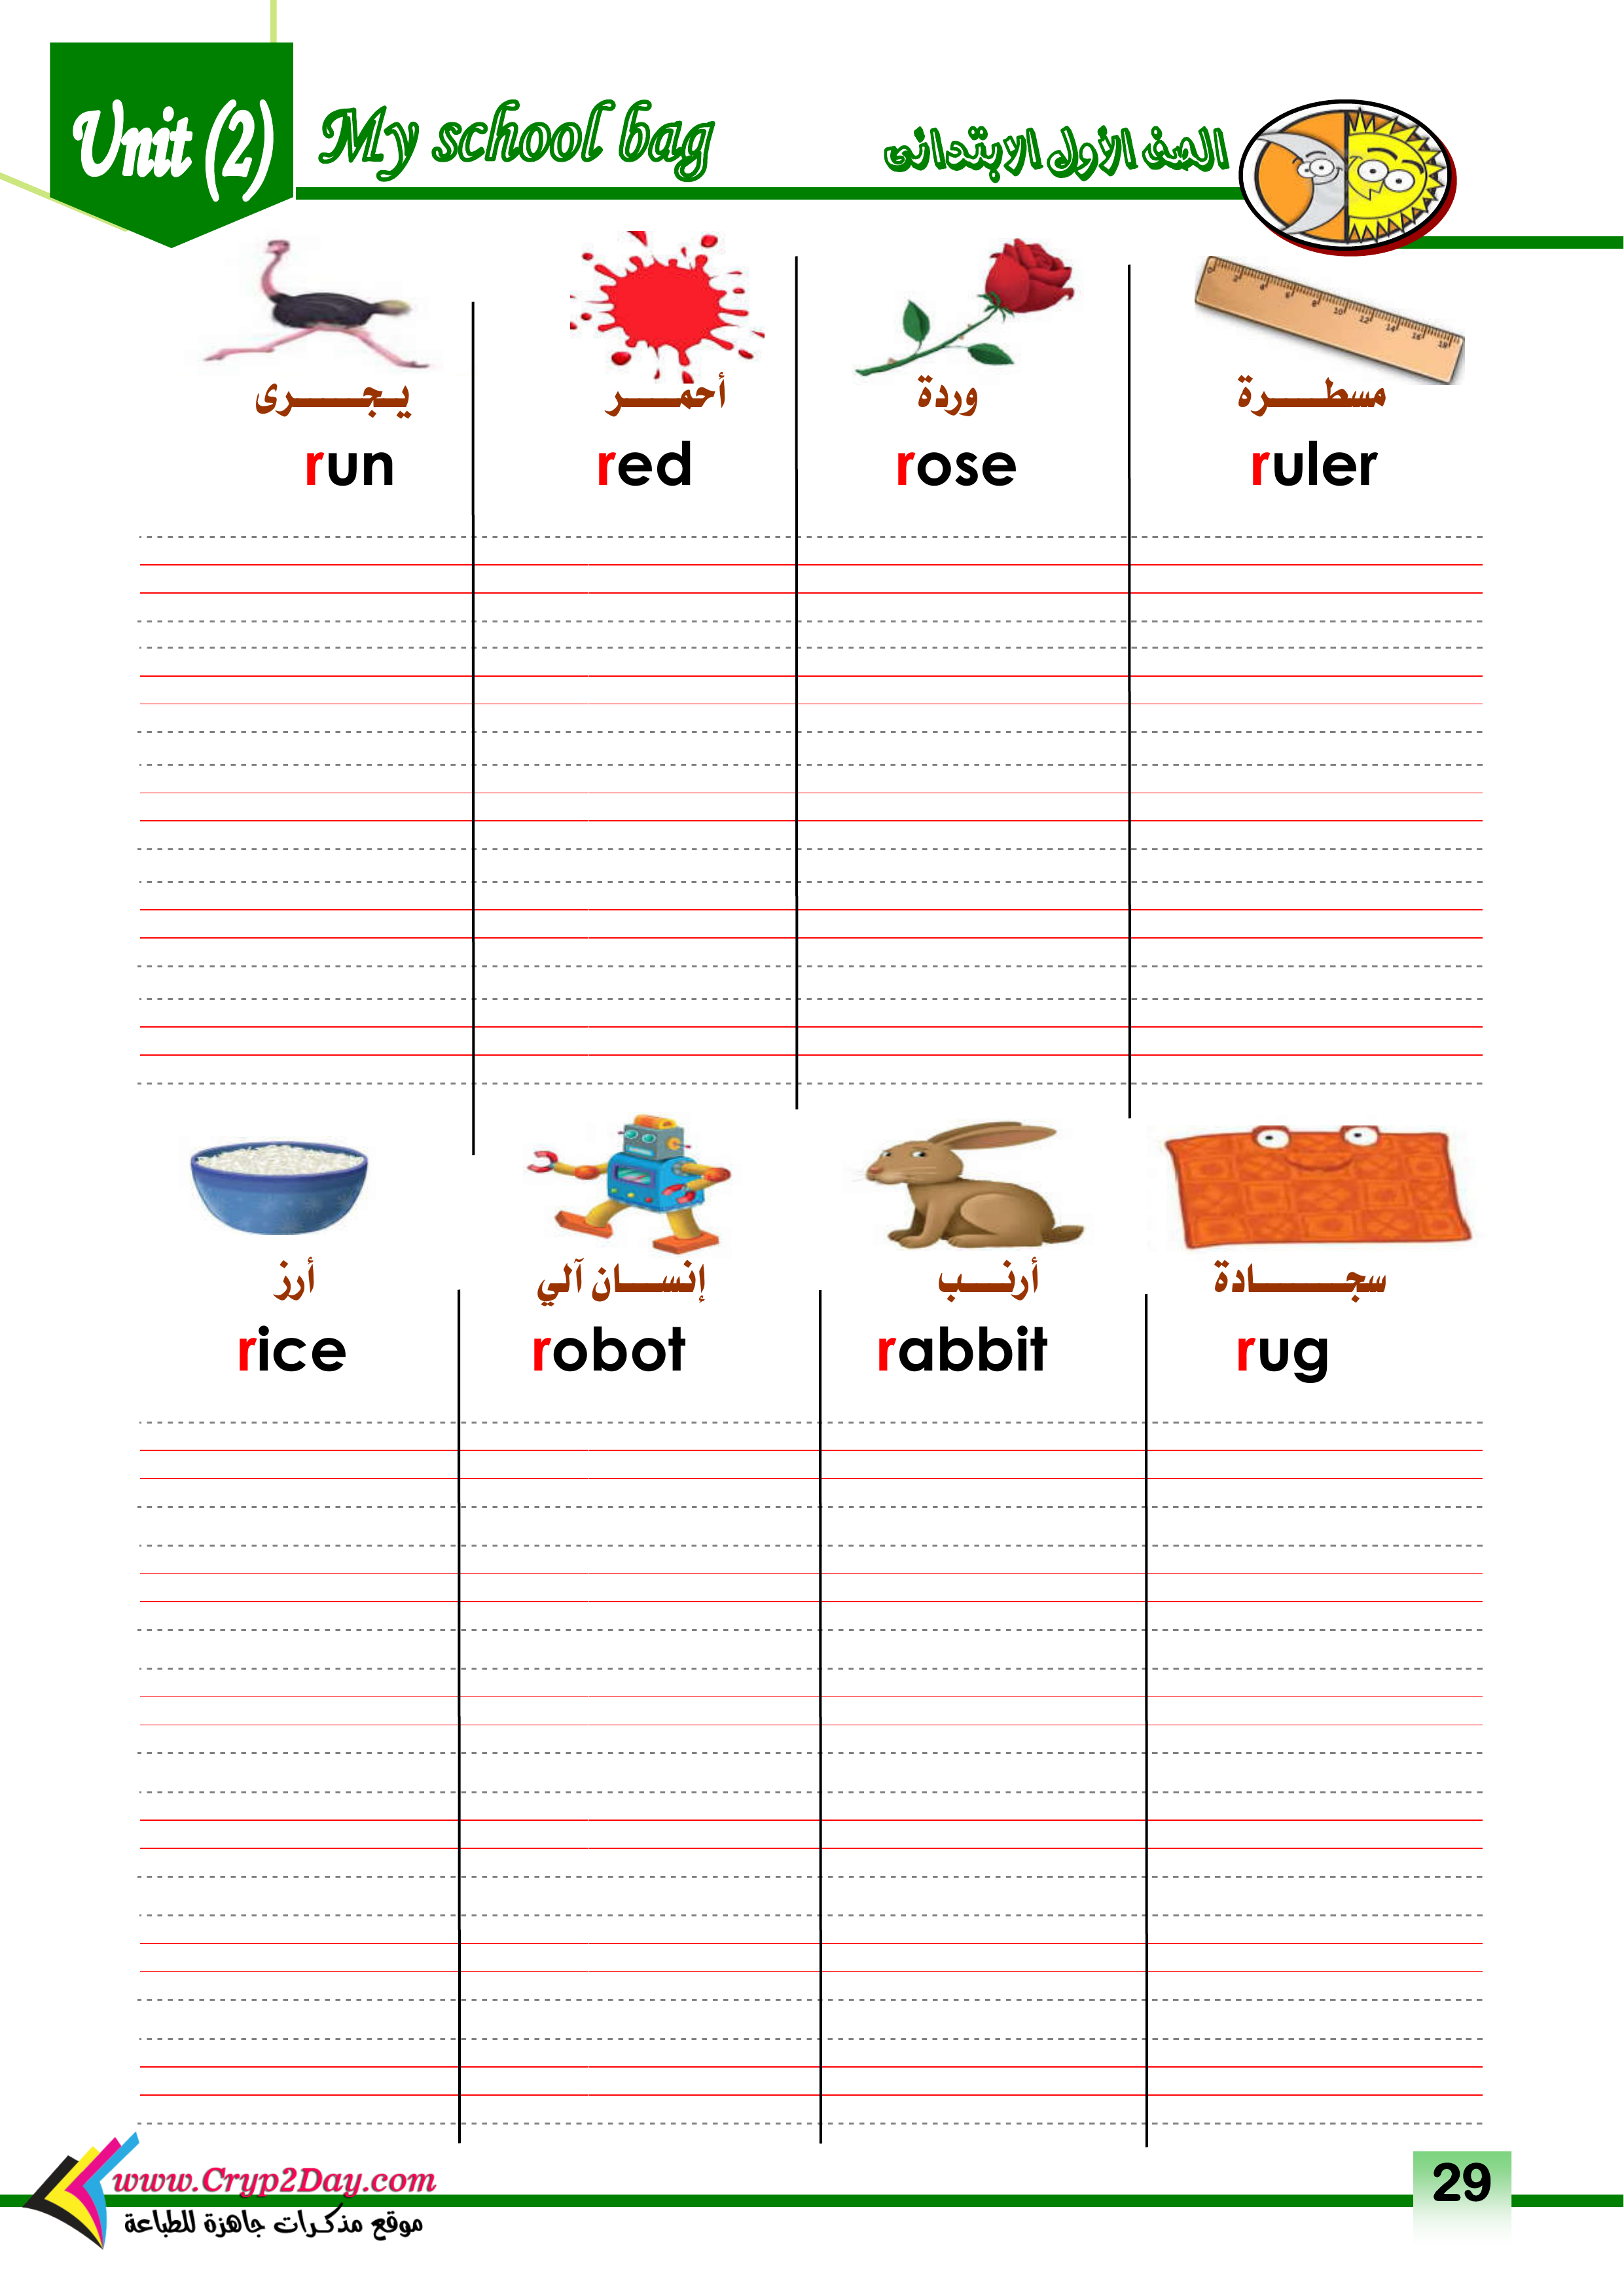 Unit (2) My school bag الصف الأول الابتدائى
يـجـــــــرى أحمـــــر وردة مسطـــــرة
run red rose ruler
أرز إنســـان آلي أرنـــب سجـــــــادة
rice robot rabbit rug
www.Cryp2Day.com
موقع مذكرات جاهزة للطباعة
29